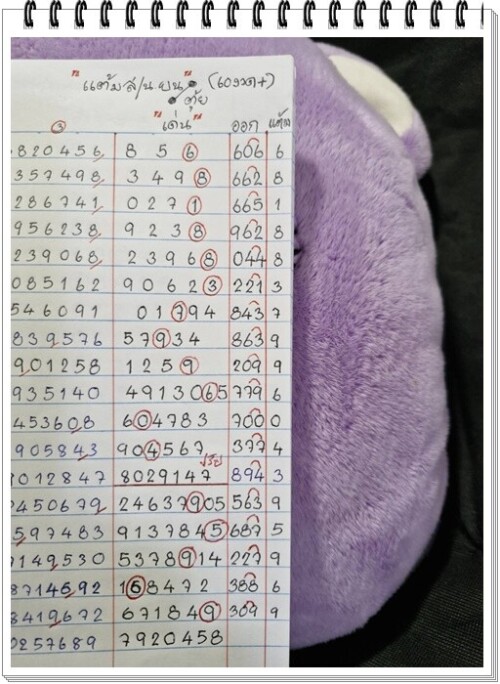 "แต้มส/น ยน" (เองวด+)
ตุ้ย
③ "เด่น" ออก แต้ม
820456 8 5 6 606 6
357498 3 4 9 8 662 8
286741 0 2 7 1 665 1
956238 9 2 3 8 962 8
239068 2 3 9 6 8 044 8
085162 9 0 6 2 3 221 3
546091 0 1 7 9 4 843 7
839576 5 7 9 3 4 863 9
901258 1 2 5 9 209 9
935140 4913065 779 6
453608 604783 700 0
905843 904567 377 4
3012847 8029147 894 3
2450679 24637905 563 9
597483 9137845 687 5
7149530 5378914 227 9
8714692 168472 388 6
8419672 671849 309 9
0257689 7920458